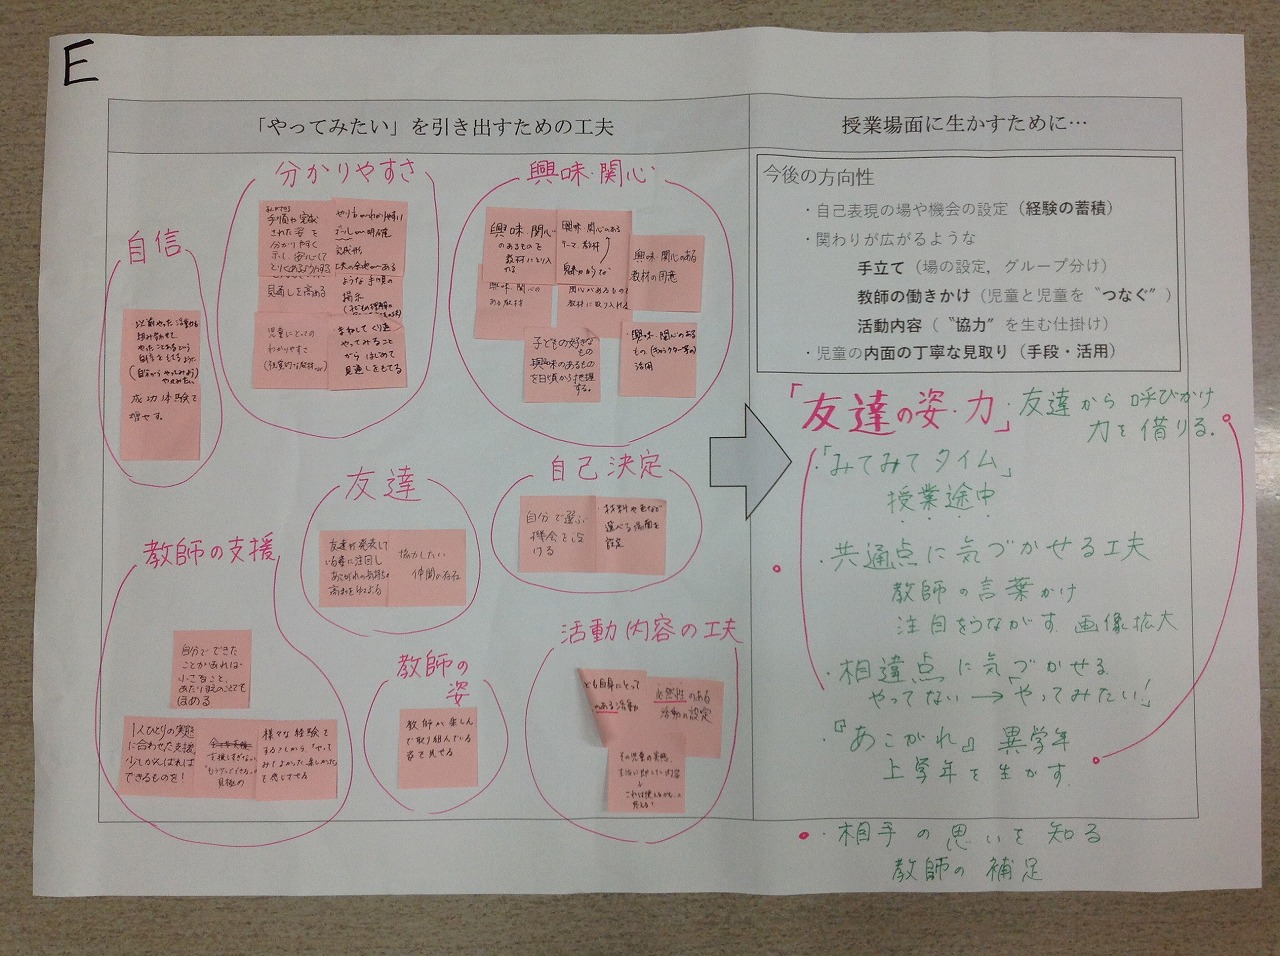 E
「やってみたい」を引き出すための工夫
授業場面に生かすために…
自信
成功体験を
増やす。
分かりやすさ
手順や完成
された姿を
分かりやすく
示し、安心して
見通しを高める
やり方がわかりやすい
ゴールが明確
完成形
ような手順の
掲示
児童にとっての
わかりやすさ
やってみること
からはじめて
見通しをもてる
興味・関心
興味・関心
のあるものを
教材にとり入
れる
興味・関心のある
テーマ、教材
魅力的な
興味・関心のある
教材の用意
興味・関心の
ある教材
関心があるもので
教材に取り入れる
子どもの好きな
もの
興味のあるもの
を日頃から把握
する。
・興味・関心のある
もの(キャラクター等)の
活用
友達
友達が発表して
いる姿に注目し
あこがれの気持ちを
協力したい
仲間の存在
自己決定
自分で選ぶ
機会を設
ける
・材料や色など
選べる場面を
設定
教師の支援
自分でできた
ことがあれば
小さなこと、
あたり前のことでも
ほめる
1人ひとりの実態
に合わせた支援
少しがんばれば
できるものを!
様々な経験を
教師の
姿
教師が楽しん
で取り組んでいる
姿を見せる
活動内容の工夫
ども自身にとって
のある活動
必然性のある
活動の設定
その児童の実態、
今後の方向性
・自己表現の場や機会の設定（経験の蓄積）
・関わりが広がるような
手立て（場の設定，グループ分け）
教師の働きかけ（児童と児童を〝つなぐ〞）
活動内容（〝協力〞を生む仕掛け）
・児童の内面の丁寧な見取り（手段・活用）
「友達の姿・力」・友達から呼びかけ
力を借りる。
・「みてみてタイム」
授業途中
・共通点に気づかせる工夫
教師の言葉かけ
注目をうながす 画像拡大
・相違点に気づかせる
やってない→「やってみたい!」
・『あこがれ』異学年
上学年を生かす
・相手の思いを知る
教師の補足